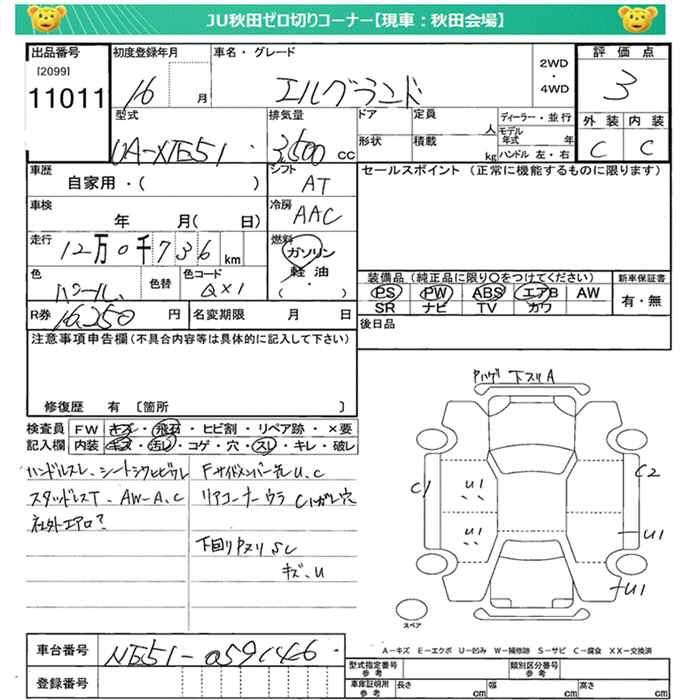 JU秋田ゼロ切りコーナー【現車：秋田会場】
出品番号
[2099]
11011
初度登録年月
16 月
車名・グレード
エルグランド
2WD
・
4WD
評価点
3
外装 内装
C C
型式
UA-NE51
排気量
3,500 cc
ドア 定員 人
形状 積載 kg
ディーラー・並行
モデル年式 年
ハンドル 左・右
車歴
自家用・( )
シフト
AT
セールスポイント (正常に機能するものに限ります)
車検
年 月( 日)
冷房
AAC
走行
12万0千736 km
燃料
ガソリン
軽油
( ・ )
色
パール
色替
色コード
QX1
装備品 (純正品に限り○をつけてください)
PS PW ABS エアB AW
SR ナビ TV カワ
新車保証書
有・無
R券 16,250 円
名変期限 月 日
後日品
注意事項申告欄(不具合内容等は具体的に記入して下さい)
修復歴 有 [箇所 ]
検査員記入欄
FW キズ・飛石・ヒビ割・リペア跡・×要
内装 キズ・汚レ・コゲ・穴・スレ・キレ・破レ
ハンドルスレ、シートシワヒビワレ
スタッドレスT、AW-A、C
社外エアロ?
Fサイドメンバー先U、C
リアコーナーウラ Cハガレ穴
下回りPヌリ SC
キズ、U
Pハゲ 下スリA
C1
U1
U1
C2
U1
U1
スペア
A－キズ E－エクボ U－凹み W－補修跡 S－サビ C－腐食 XX－交換済
車台番号
NE51-059146
登録番号
型式指定番号
参考
類別区分番号
参考
車庫証明用
参考
長さ cm 幅 cm 高さ cm